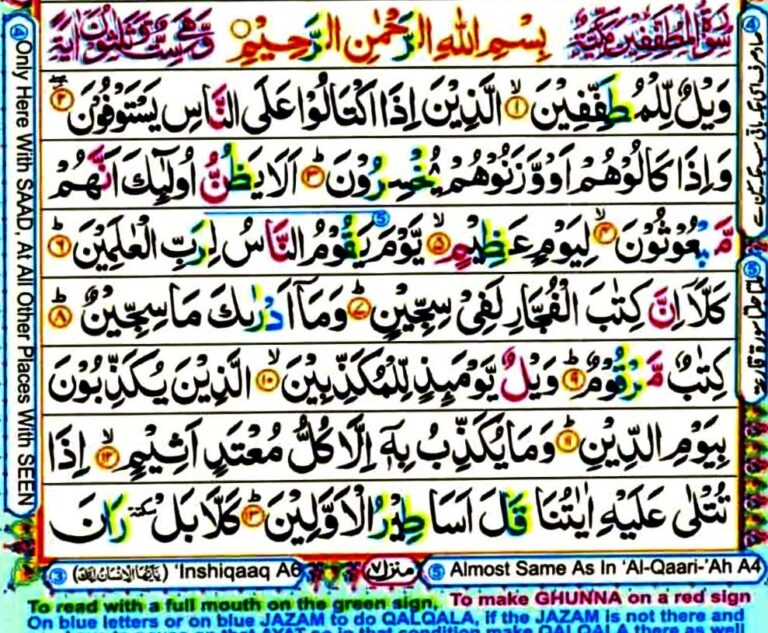 سُوْرَةُ الْمُطَفِّفِيْنَ مَكِّيَّةٌ بِسْمِ اللهِ الرَّحْمٰنِ الرَّحِيْمِ وَهِيَ سِتٌّ وَّثَلٰثُوْنَ اٰيَةً
وَيْلٌ لِّلْمُطَفِّفِيْنَ ۙ﴿۱﴾ الَّذِيْنَ اِذَا اكْتَالُوْا عَلَى النَّاسِ يَسْتَوْفُوْنَ ﴿۲﴾
وَاِذَا كَالُوْهُمْ اَوْ وَّزَنُوْهُمْ يُخْسِرُوْنَ ؕ﴿۳﴾ اَلَا يَظُنُّ اُولٰٓئِكَ اَنَّهُمْ
مَّبْعُوْثُوْنَ ۙ﴿۴﴾ لِيَوْمٍ عَظِيْمٍ ۙ﴿۵﴾ يَّوْمَ يَقُوْمُ النَّاسُ لِرَبِّ الْعٰلَمِيْنَ ؕ﴿۶﴾
كَلَّاۤ اِنَّ كِتٰبَ الْفُجَّارِ لَفِيْ سِجِّيْنٍ ؕ﴿۷﴾ وَمَاۤ اَدْرٰىكَ مَا سِجِّيْنٌ ؕ﴿۸﴾
كِتٰبٌ مَّرْقُوْمٌ ؕ﴿۹﴾ وَيْلٌ يَّوْمَئِذٍ لِّلْمُكَذِّبِيْنَ ۙ﴿۱۰﴾ الَّذِيْنَ يُكَذِّبُوْنَ
بِيَوْمِ الدِّيْنِ ؕ﴿۱۱﴾ وَمَا يُكَذِّبُ بِهٖۤ اِلَّا كُلُّ مُعْتَدٍ اَثِيْمٍ ۙ﴿۱۲﴾ اِذَا
تُتْلٰى عَلَيْهِ اٰيٰتُنَا قَالَ اَسَاطِيْرُ الْاَوَّلِيْنَ ؕ﴿۱۳﴾ كَلَّا بَلْ ٚ رَانَ
④ Only Here With SAAD, At All Other Places With SEEN
⑤ Almost Same As In 'Al-Qaari-'Ah A4
منزل ۷
③ (يٰۤاَيُّهَا الْاِنْسَانُ اِنَّكَ) 'Inshiqaaq A6
To read with a full mouth on the green sign, To make GHUNNA on a red sign
On blue letters or on blue JAZAM to do QALQALA, if the JAZAM is not there and